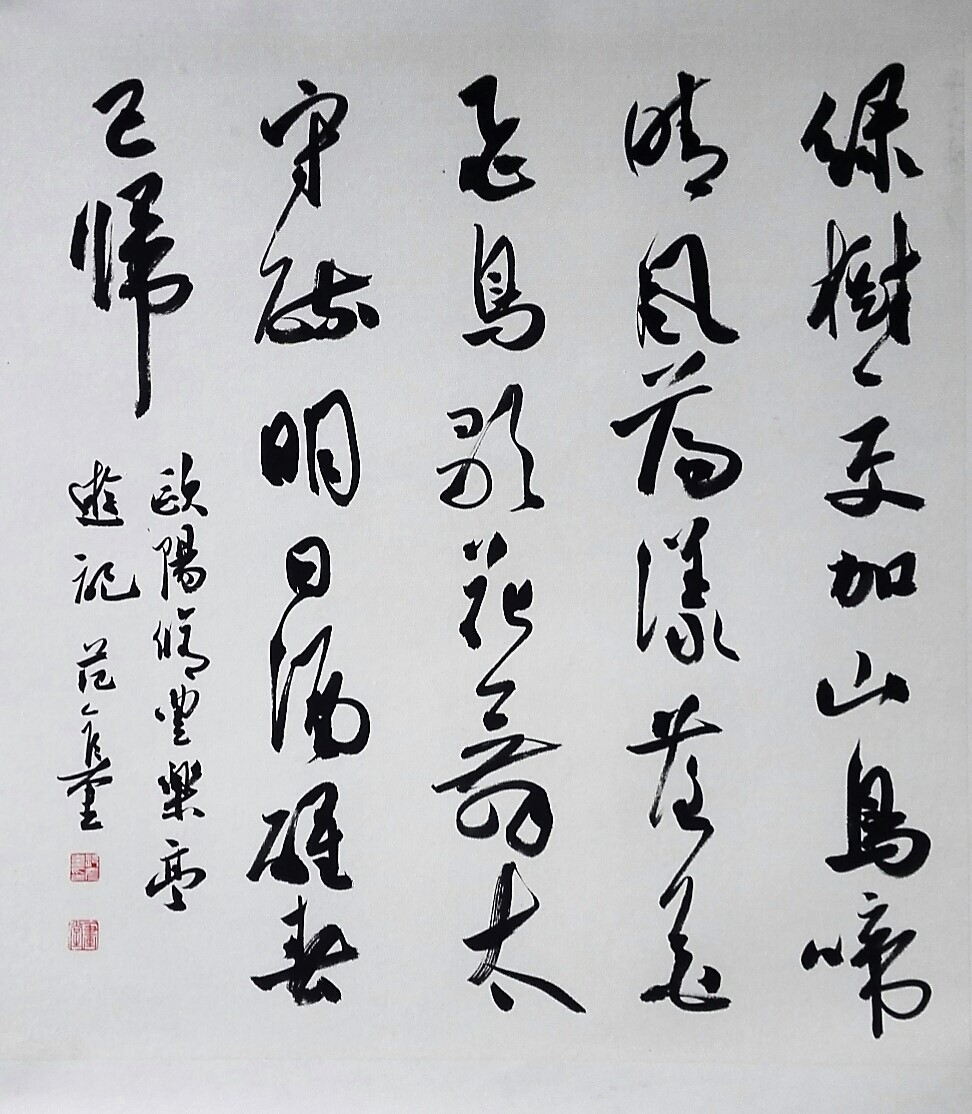 綠樹交加山鳥啼
晴風蕩漾落花
飛鳥歌花舞太
守醉明日酒醒春
已歸
歐陽脩豐樂亭
遊記 范